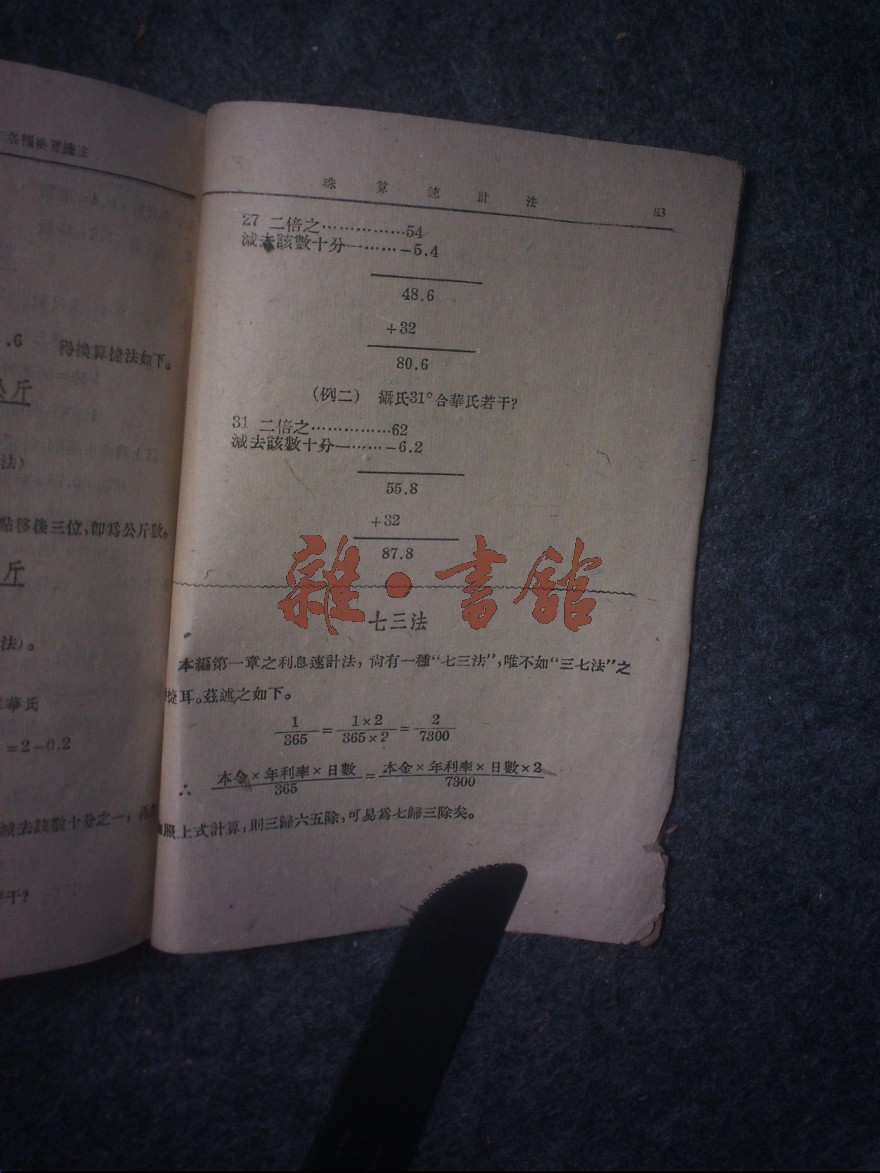 各種換算捷法
.6 得換算捷法如下。
公斤
法)
點移後三位,卽爲公斤數。
斤
法)。
華氏
=2-0.2
減去該數十分之一,再
干?
珠算速計法 83
27 二倍之……………54
減去該數十分一………-5.4
48.6
+32
80.6
(例二) 攝氏31°合華氏若干?
31 二倍之……………62
減去該數十分一………-6.2
55.8
+32
87.8
雜·書館
七三法
本編第一章之利息速計法,尙有一種“七三法”,唯不如“三七法”之
捷耳。茲述之如下。
1/365 = 1×2/365×2 = 2/7300
∴ 本金×年利率×日數/365 = 本金×年利率×日數×2/7300
照上式計算,則三歸六五除,可易爲七歸三除矣。